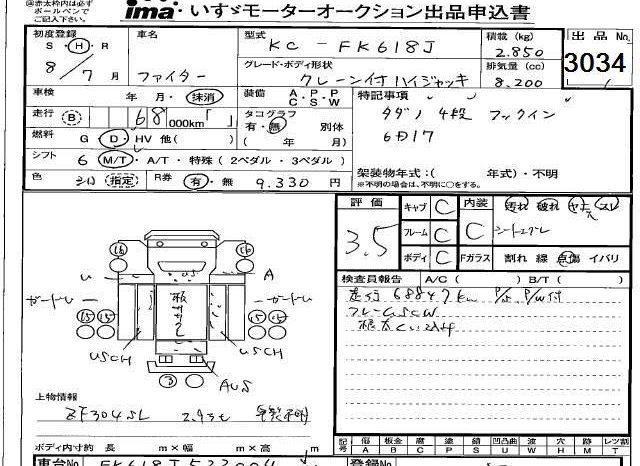 ※赤太枠内は必ず
ボールペンで
ご記入下さい。
ima いすゞモーターオークション出品申込書
初度登録 S・H・R 8/7月
車名 ファイター
型式 KC-FK618J
積載(kg) 2.850
出品No 3034
グレード・ボディ形状 クレーン付 ハイジャッキ
排気量(cc) 8.200
車検 年 月・抹消
装備 A・P・P C・S・W
特記事項
タダノ 4段 フックイン
6D17
走行 B 68 000km
タコグラフ 有・無 別体 ( 年 月)
燃料 G・D・HV 他( )
シフト 6 M/T・A/T・特殊(2ペダル・3ペダル)
架装物年式:( 年式)・不明
※不明の場合は、不明に○をする。
色 シロ 指定
R券 有・無 9.330円
評価 3.5
キャブ C
内装 C 汚れ 破れ ヤニ スレ
フレーム C
ボディ C
Fガラス 割れ 線 点傷 イバリ
検査員報告 A/C( ) B/T( )
走行 68847km P/S P/W付
フレームSCW
16 16
U A
ガートU 15 15 15 15 ガートU
USCH USCH
3
AUS
上物情報
ZF304SL 2.93t
ボディ内寸約 長 m×幅 m×高 m
記号 傷 A 板金 B 腐 C 塗 P 錆 S 凹 U 凸曲 波 W 穴 H 跡 M 外 T レツ割
車台No FK618J
登録No